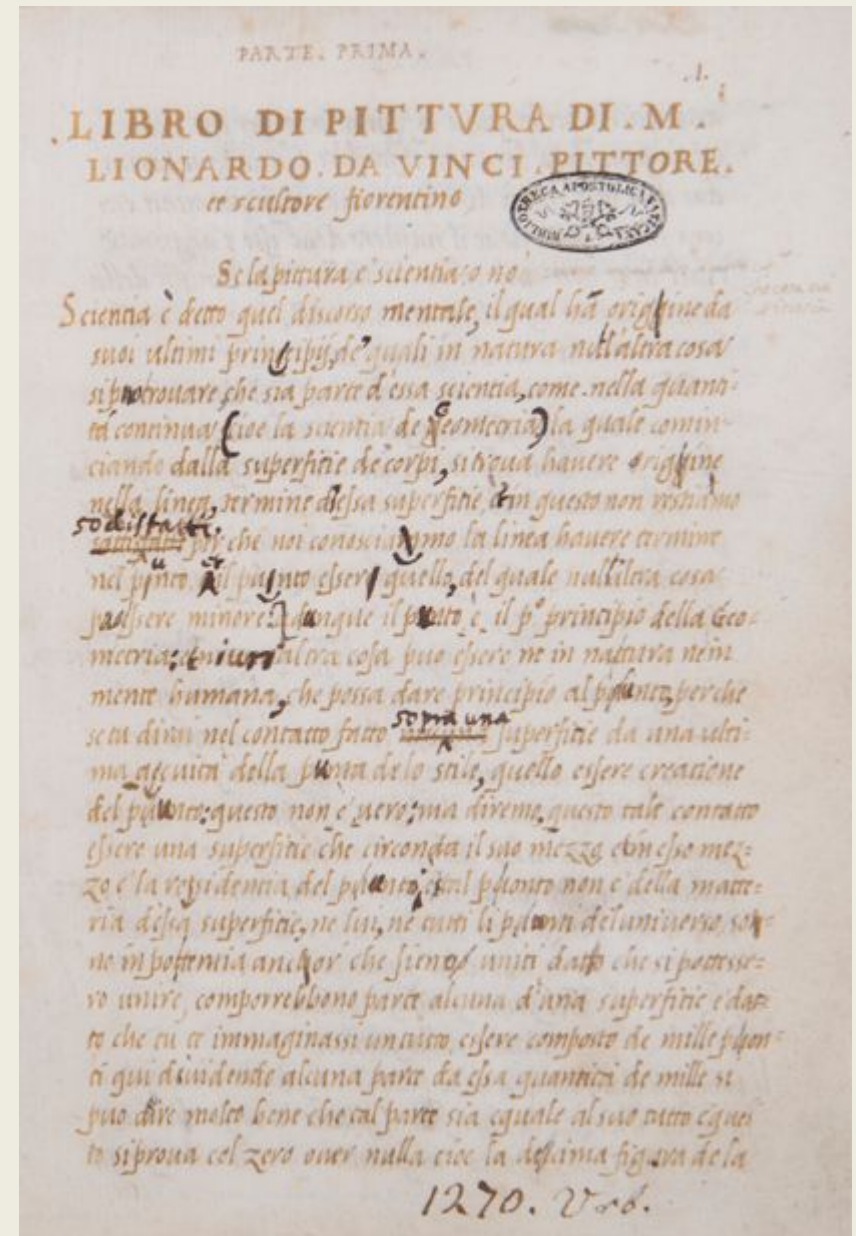 PARTE. PRIMA.
.1.
.LIBRO DI PITTVRA DI.M.
LIONARDO.DA VINCI.PITTORE.
et scultore fiorentino
BIBLIOTHECA APOSTOLICA VATICANA
Se la pittura è scientia o no
Scientia è detto quel discorso mentale, il qual ha origgine da
suoi ultimi principij, de quali in natura null'altra cosa
si puo trouare, che sia parte d'essa scientia, come nella quanti-
tá continua (cioe la scientia de Geometria) la quale comin-
ciando dalla superfitie de corpi, si troua hauere origgine
nella linea, termine d'essa superfitie, et in questo non restiamo
sodisfatti.
perche noi conosciammo la linea hauere termine
nel punto, et il punto essere quello, del quale null'altra cosa
po essere minore. adunque il punto è il p° principio della Geo=
metria; et niuna altra cosa puo essere ne in nattura ne in
mente humana, che possa dare principio al punto, perche
sopra una
se tu dirai nel contatto fatto superfitie da una ulti-
ma accuita della punta de lo stile, quello essere creatione
del punto; questo non è uero; ma diremo, questo tale contatto
essere una superfitie che circonda il suo mezzo et in esso mez=
zo è la residentia del punto, et tal punto non è della matte=
ria d'essa superfitie, ne lui, ne tutti li punti del uniuerso son
no in potentia anchor che sieno uniti dato che si potesse=
ro unire, comporrebbono parte alcuna d'una superfitie e dat=
to che tu te immaginassi un tutto, essere composto de mille pon=
ti qui diuidendo alcuna parte da essa quantità de mille si
puo dire molto bene che tal parte sia eguale al suo tutto e ques
to si proua col zero ouer nulla cioe la decima figura de la
1270. Urb.